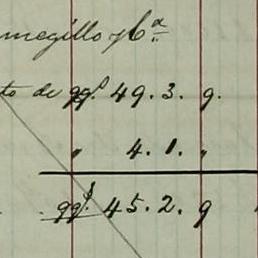 megillo y Cª
to de qq.s 49.3. 9.
" 4.1. "
qq.s 45.2. 9